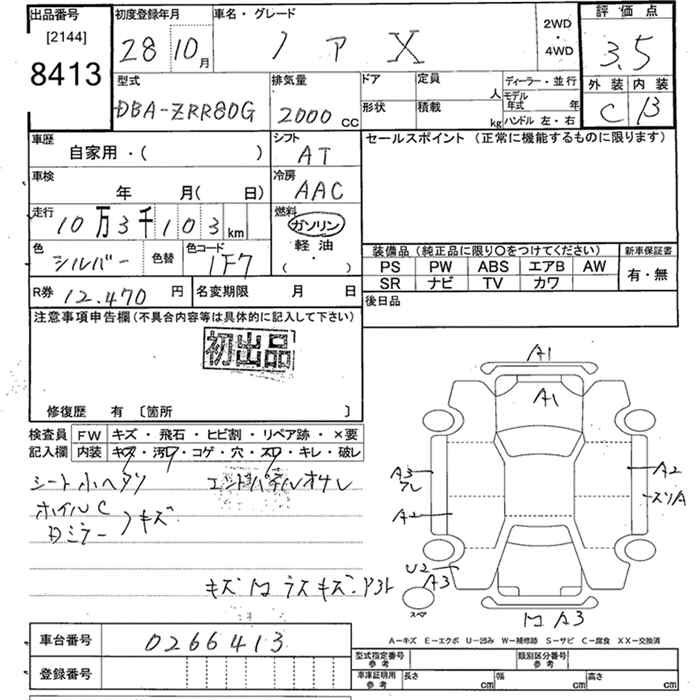 出品番号 初度登録年月 車名・グレード 2WD・4WD 評価点
[2144]
8413 28 10月 ノア X 3.5
型式 排気量 ドア 定員 人 ディーラー・並行 外装 内装
DBA-ZRR80G 2000cc 形状 積載 kg モデル年式 年 ハンドル 左・右 C B
車歴 自家用・( ) シフト AT セールスポイント (正常に機能するものに限ります)
車検 年 月( 日) 冷房 AAC
走行 10万3千103km 燃料 ガソリン
軽油
( ・ )
色 シルバー 色替 色コード 1F7 装備品 (純正品に限り○をつけてください) 新車保証書
PS PW ABS エアB AW 有・無
SR ナビ TV カワ
R券 12.470円 名変期限 月 日 後日品
注意事項申告欄 (不具合内容等は具体的に記入して下さい)
初出品
修復歴 有 〔箇所 〕
検査員 FW キズ・飛石・ヒビ割・リペア跡・×要
記入欄 内装 キズ・汚れ・コゲ・穴・スレ・キレ・破レ
シート小ヘタリ エンドパネルオサレ
ホイルC
Dミラー 〉キズ
A1
A1
A3
A2
A2
スリA
U2
A3
スペア
A3
車台番号 0266413
登録番号
A-キズ E-エクボ U-凹み W-補修跡 S-サビ C-腐食 XX-交換済
型式指定番号 参考 類別区分番号 参考
車庫証明用 参考 長さ cm 幅 cm 高さ cm